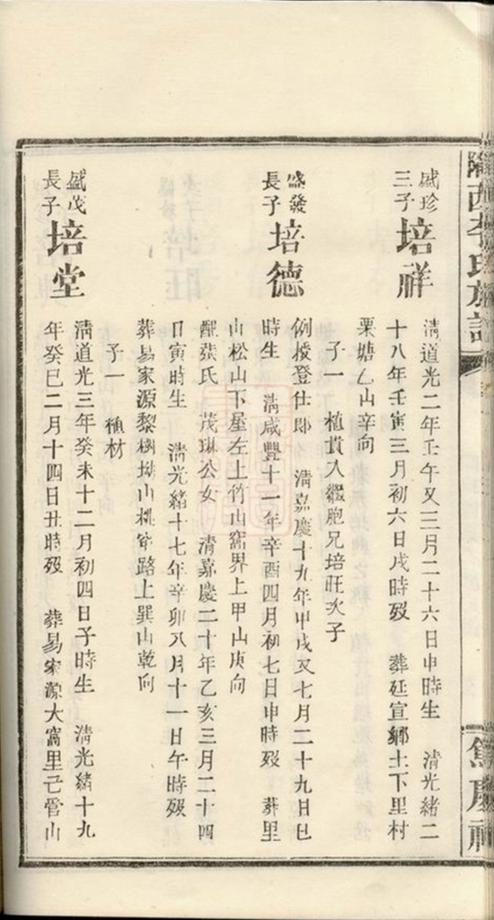 隴西李氏族譜
盛珍
三子
培祥
清道光二年壬午又三月二十六日申時生 清光緒二
十八年壬寅三月初六日戌時歿 葬延宣鄉土下里村
栗塘乙山辛向
子一 植貫入繼胞兄培旺次子
盛發
長子
培德
例授登仕郎 清嘉慶十九年甲戌又七月二十九日巳
時生 清咸豐十一年辛酉四月初七日申時歿 葬里
山松山下屋左上竹山窩界上甲山庚向
配張氏 茂琳公女 清嘉慶二十年乙亥三月二十四
日寅時生 清光緒十七年辛卯八月十一日午時歿
葬易家源黎樹坳山桃窩路上巽山乾向
子一 植材
盛茂
長子
培堂
清道光三年癸未十二月初四日子時生 清光緒十九
年癸巳二月十四日丑時歿 葬易家源大窩里己管山